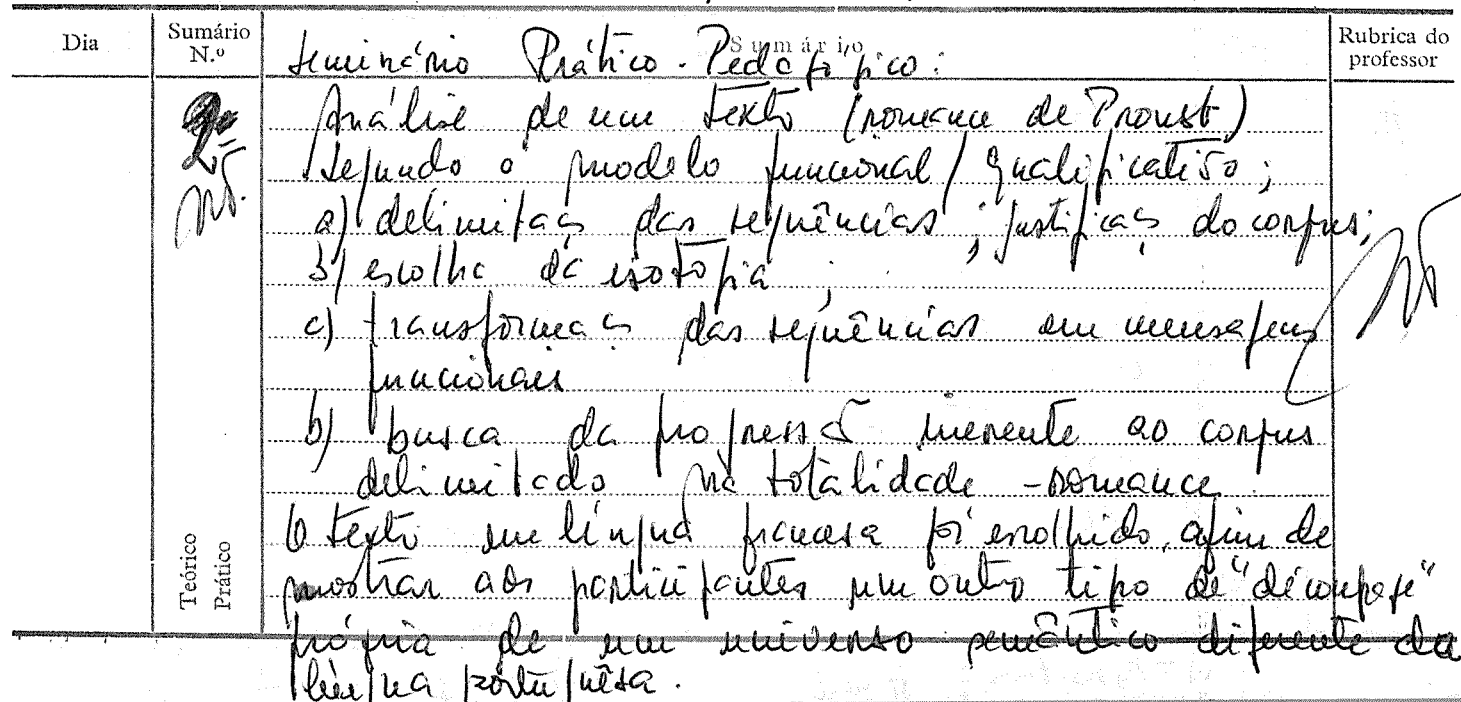 Dia
Sumário N.º
Sumário
Rubrica do professor
Seminário Prático-Pedagógico:
Análise de um texto (romance de Proust)
segundo o modelo funcional/qualificativo;
a) delimitaç das sequências; justificaç do corpus;
b) escolha da isotopia;
c) transformaç das sequências em mensagens
funcionais
b) busca da progressã inerente ao corpus
delimitado na totalidade-romance
O texto em língua francesa foi escolhido, afim de
mostrar aos participantes um outro tipo de "découpage"
própria de um universo semântico diferente da
língua portuguêsa.
Teórico
Prático